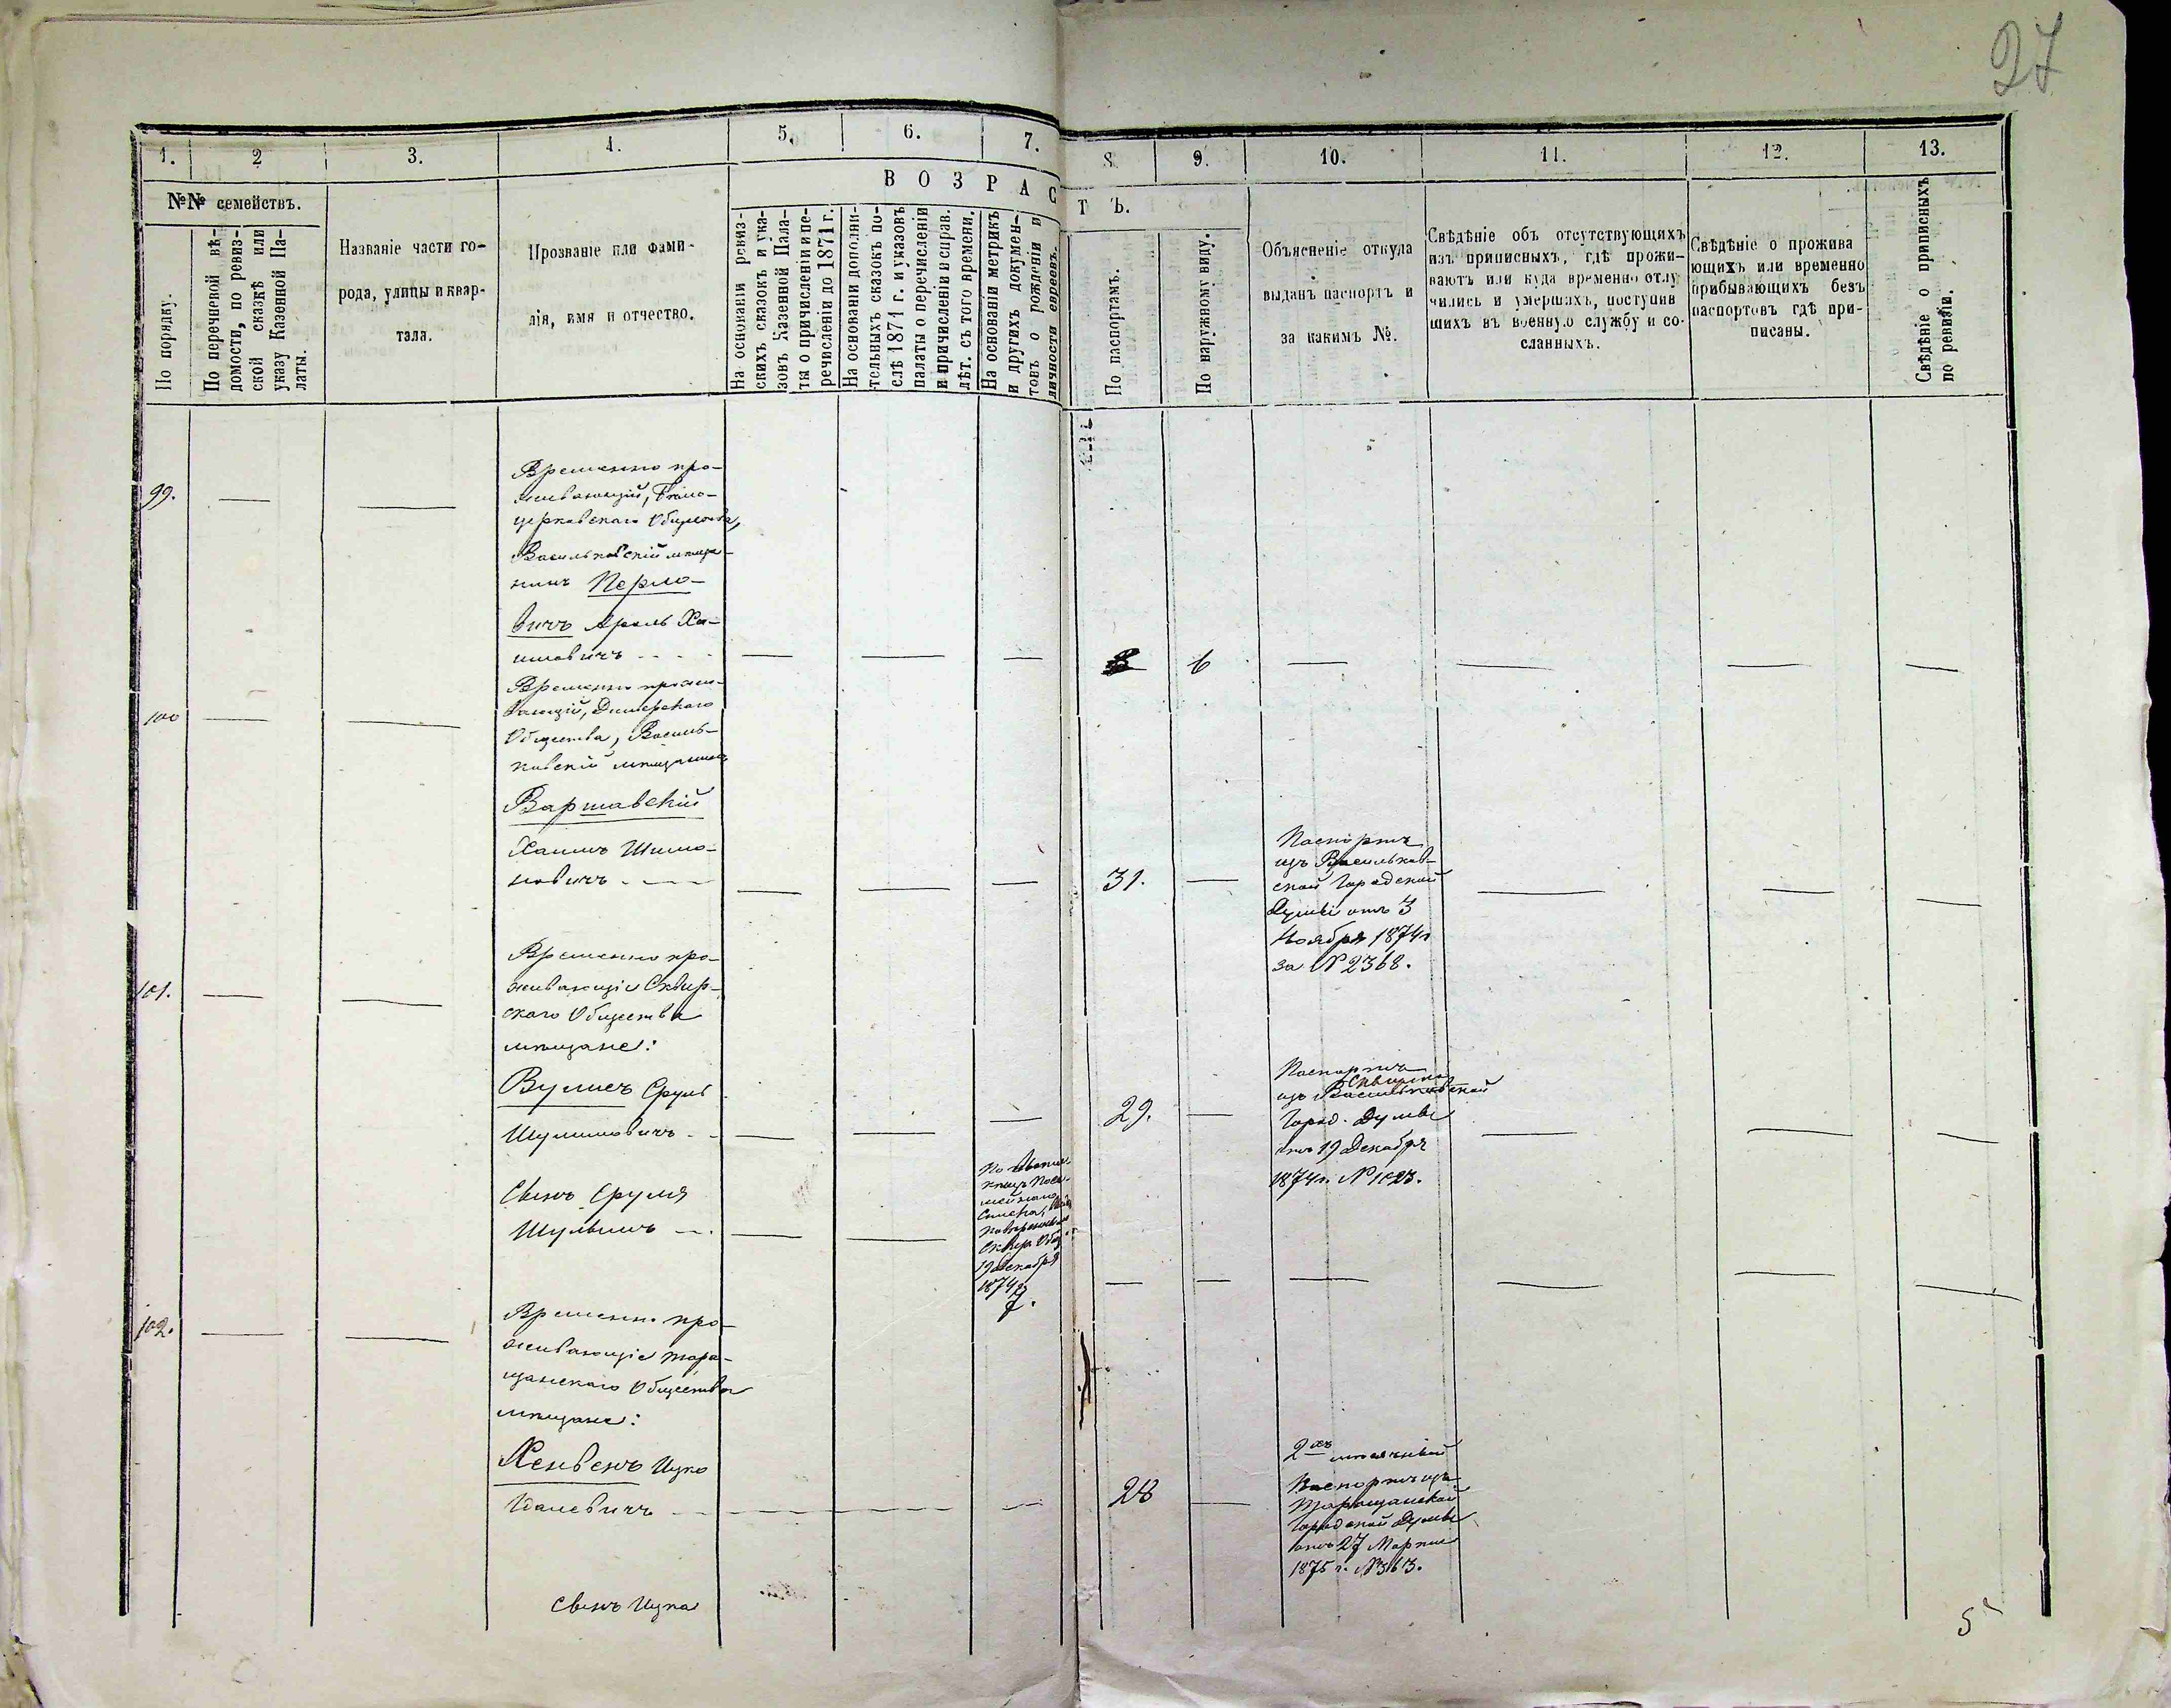 27
1.
2
3.
4.
5.
6.
7.
8
9.
10.
11.
12.
13.
№№ семействъ.
В О З Р А С
Т Ъ.
По порядку.
По перечневой вѣ-
домости, по ревиз-
ской сказкѣ или
указу Казенной Па-
латы.
Названіе части го-
рода, улицы и квар-
тала.
Прозваніе или фами-
лія, имя и отчество.
На основаніи ревиз-
скихъ сказокъ и ука-
зовъ Казенной Пала-
ты о причисленіи и пе-
речисленіи до 1871 г.
На основаніи дополни-
тельныхъ сказокъ по-
слѣ 1871 г. и указовъ
палаты о перечисленіи
и причисленіи и справ.
лѣт. съ того времени.
На основаніи метрикъ
и другихъ докумен-
товъ о рожденіи и
личности евреевъ.
По паспортамъ.
По наружному виду.
Объясненіе откуда
выданъ паспортъ и
за какимъ №.
Свѣдѣніе объ отсутствующихъ
изъ приписныхъ, гдѣ прожи-
ваютъ или куда временно отлу
чились и умершихъ, поступив
шихъ въ военную службу и со-
сланныхъ.
Свѣдѣніе о прожива
ющихъ или временно
прибывающихъ безъ
паспортовъ гдѣ при-
писаны.
Свѣдѣніе о приписныхъ
по ревизіи.
99.
Временно про-
живающій, Бѣло-
церковскаго Общества,
Васильковскій мѣща-
нинъ Перло-
вичъ Арель Ха-
имовичъ
6
100
Временно прожи-
вающій, Димерскаго
Общества, Василь-
ковскій мѣщанинъ
Варшавскій
Хаимъ Шимо-
новичъ
31.
Паспортъ
изъ Васильков-
ской Городской
Думы отъ 3
Ноября 1874 г
за № 2368.
101.
Временно про-
живающіе Сквир-
скаго Общества
мѣщане:
Вулисъ Сруль
Шулимовичъ
29.
Паспортъ
изъ Васильковской
Город. Думы
отъ 19 Декабря
1874 г. №
Сынъ Сруля
Шульимъ
19 Декабря
1874 г
7.
102.
Временно про-
живающіе Тара-
щанскаго Общества
мѣщане:
Хенвенъ Ицко
Идалевичъ
28
2хъ мѣсячный
Паспортъ изъ
Таращанской
Городской Думы
отъ 27 Марта
1875 г. № 363.
Сынъ Ицка